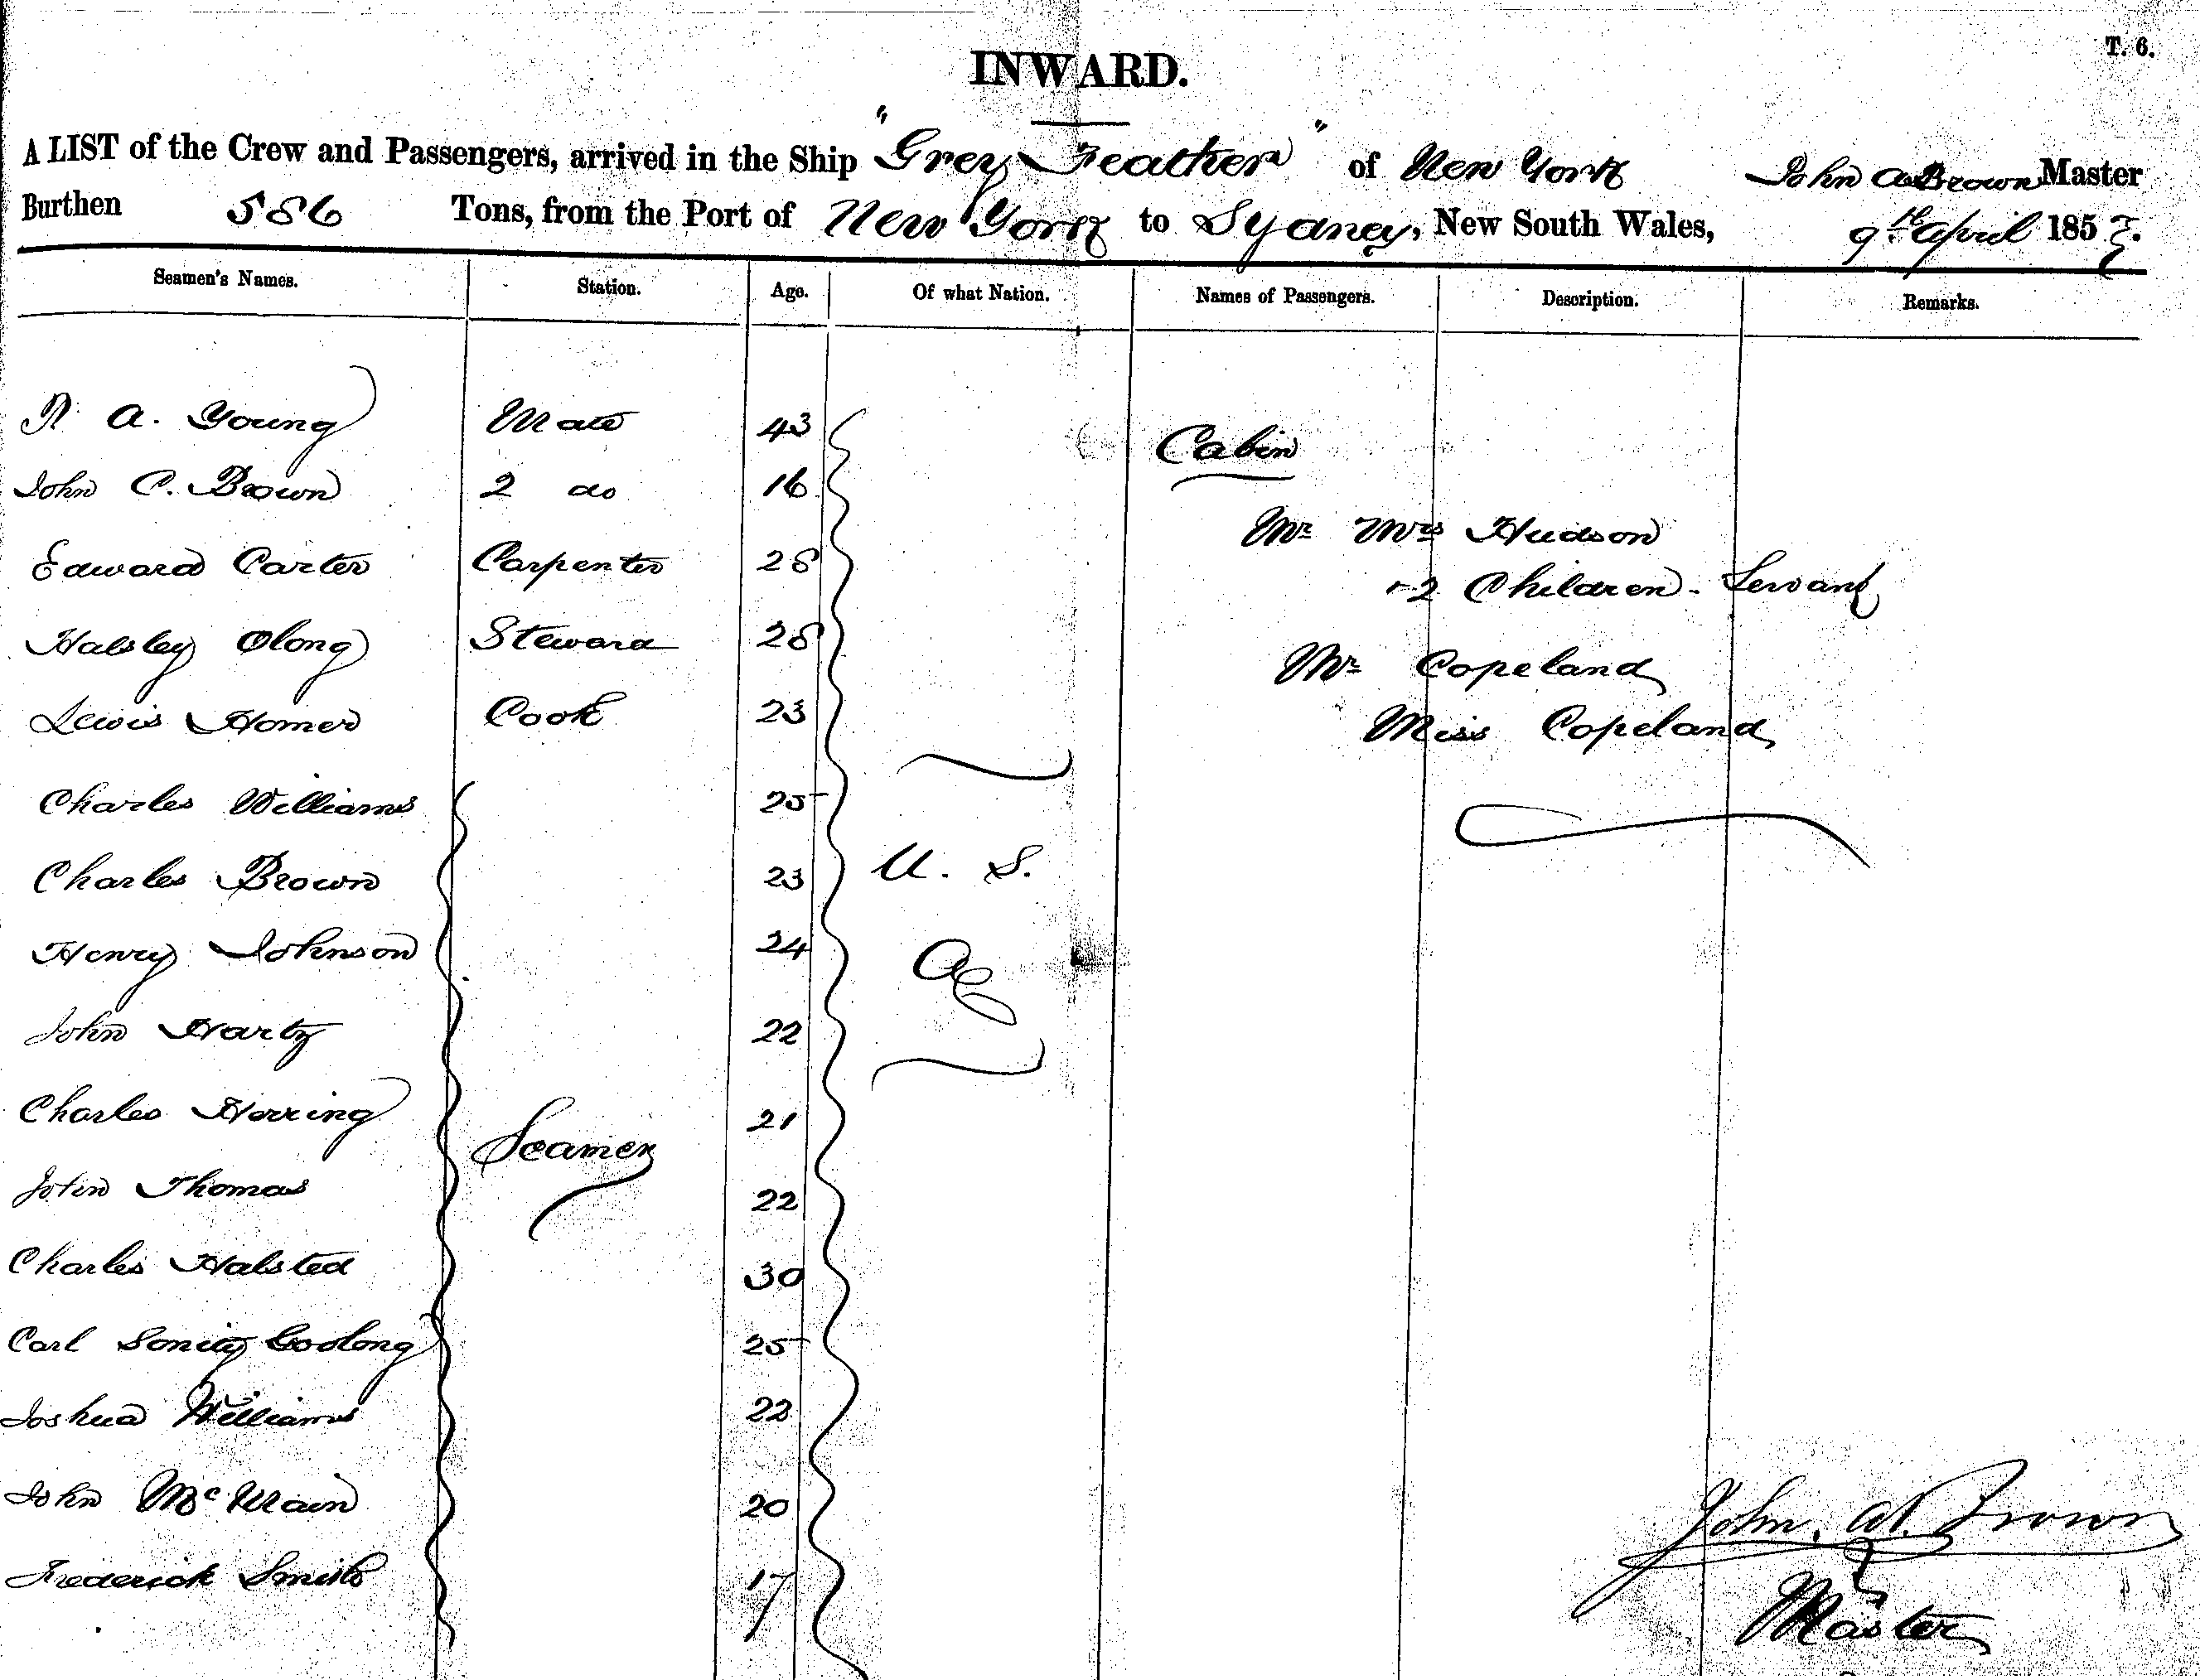 T. 6.
INWARD.
A LIST of the Crew and Passengers, arrived in the Ship "Grey Feather" of New York John A Brown Master
Burthen 586 Tons, from the Port of New York to Sydney, New South Wales, 9th April 1857.
Seamen's Names. Station. Age. Of what Nation. Names of Passengers. Description. Remarks.
A. Young Mate 43
Cabin
John C. Brown 2 do 16
Mr Mrs Hudson
Edward Carter Carpenter 28
2 Children - Servant
Halsley Olong Steward 28
Mr Copeland
Lewis Homer Cook 23
Miss Copeland
Charles Williams 25
Charles Brown 23 U. S.
Henry Johnson 24
John Harty 22
Charles Herring 21
Seamen
John Thomas 22
Charles Halsted 30
Carl 25
Joshua Williams 22
John Mc Main 20
John A. Brown
Frederick Smith 17
Master